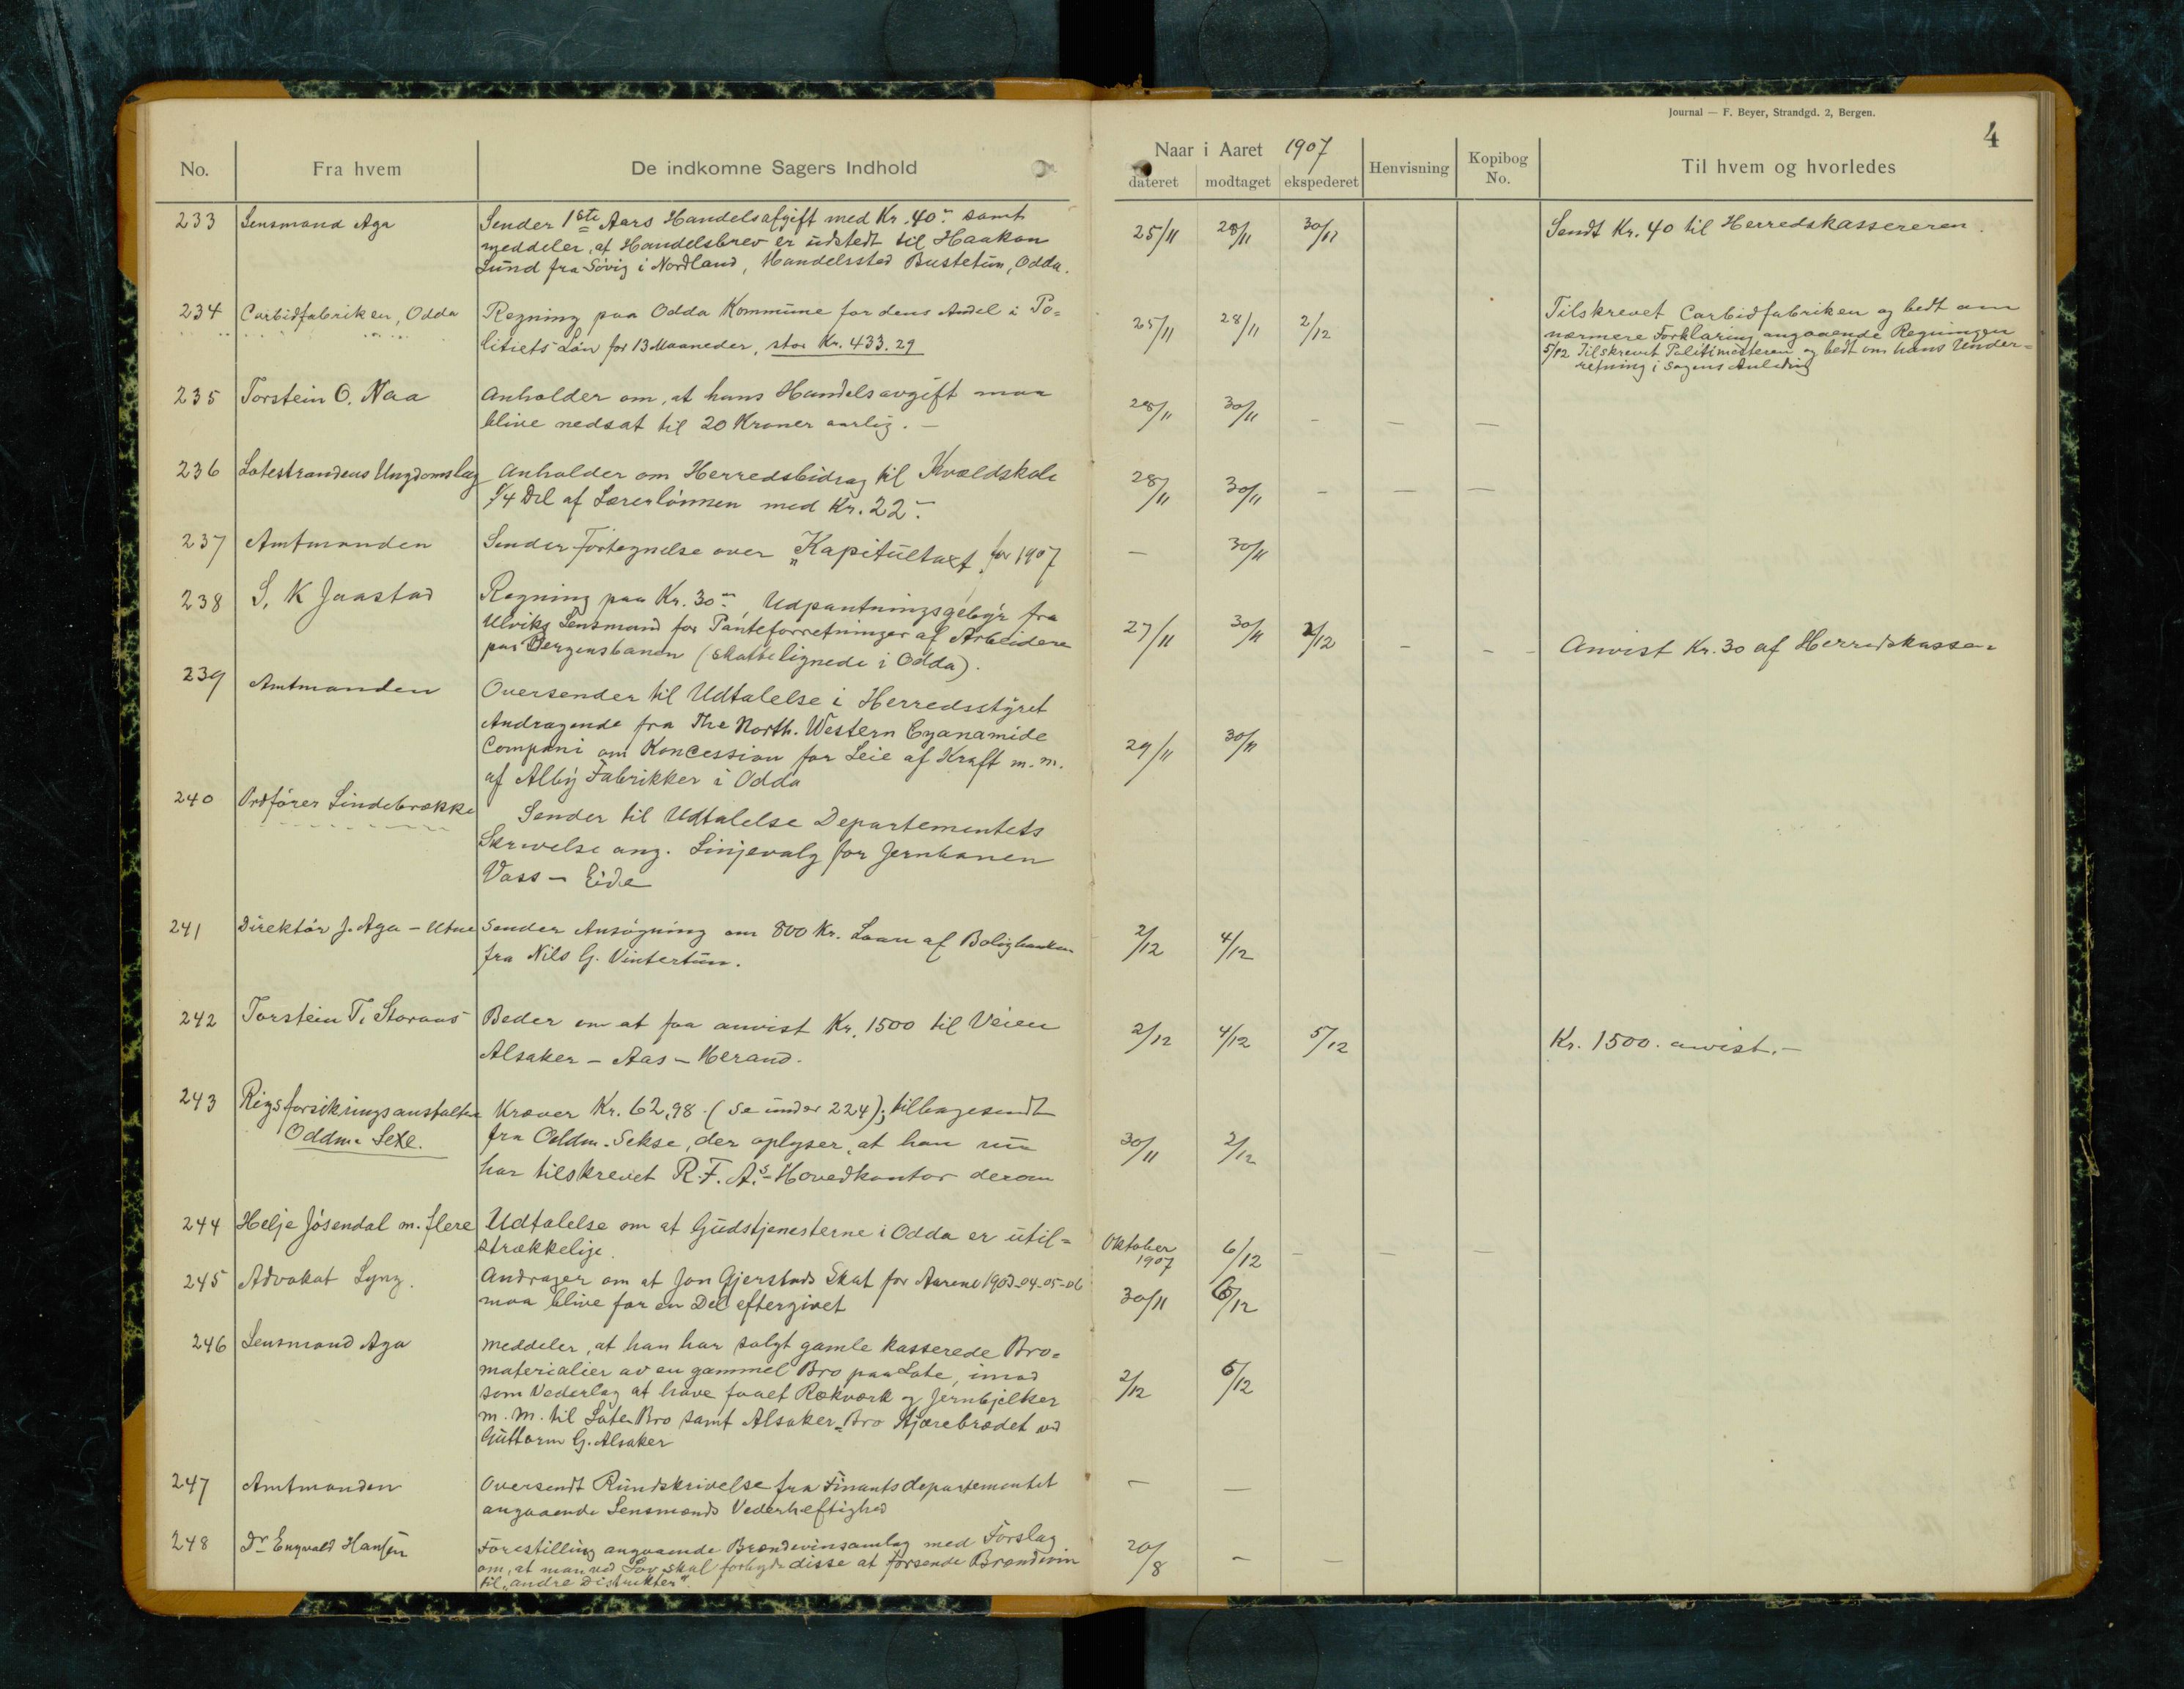 Journal — F. Beyer, Strandgd. 2, Bergen.
4
No. Fra hvem De indkomne Sagers Indhold Naar i Aaret 1907 Henvisning Kopibog No. Til hvem og hvorledes
dateret modtaget ekspederet
233 Lensmand Aga Sender 1ste Aars Handelsafgift med Kr. 40.- samt
meddeler, at Handelsbrev er udstedt til Haakon
Lund fra Søvig i Nordland, Handelssted Bustetun, Odda.
25/11 28/11 30/11 Sendt Kr. 40 til Herredskassereren.
234 Carbidfabriken, Odda Regning paa Odda Kommune for dens Andel i Po=
litiets Løn for 13 Maaneder, stor Kr. 433.29
25/11 28/11 2/12 Tilskrevet Carbidfabriken og bedt om
nærmere Forklaring angaaende Regningen
5/12 Tilskrevet Politimesteren og bedt om hans Under=
retning i Sagens Anledning
235 Torstein O. Naa Anholder om, at hans Handelsavgift maa
blive nedsat til 20 Kroner aarlig. —
28/11 30/11 - — —
236 Lotestrandens Ungdomslag Anholder om Herredsbidrag til Kvældskole
1/4 Del af Lærerlønnen med Kr. 22.-
28/11 30/11 - — —
237 Amtmanden Sender Fortegnelse over „Kapitultaxt“ for 1907
— 30/11
238 S. K Jaastad Regning paa Kr. 30.-, Udpantningsgebyr fra
Ulviks Lensmand for Panteforretninger af Arbeidere
paa Bergensbanen (skattelignede i Odda).
27/11 30/11 2/12 - - - Anvist Kr. 30 af Herredskassen
239 Amtmanden Oversender til Udtalelse i Herredsstyret
Andragende fra The North. Western Cyanamide
Compani om Koncession for Leie af Kraft m. m.
af Alby Fabrikker i Odda
29/11 30/11
240 Ordfører Lindebrække Sender til Udtalelse Departementets
Skrivelse ang. Linjevalg for Jernbanen
Voss — Eide
241 Direktør J. Aga - Utne Sender Ansøgning om 800 Kr. Laan af Boligbanken
fra Nils G. Vintertun.
2/12 4/12
242 Torstein T. Storaas Beder om at faa anvist Kr. 1500 til Veien
Alsaker — Aas — Herand.
2/12 4/12 5/12 Kr. 1500. anvist. —
243 Rigsforsikringsanstalten
Oddm. Sexe.
Kræver Kr. 62,98. (se under 224); tilbagesendt
fra Oddm. Sekse, der oplyser, at han nu
har tilskrevet R. F. A.s - Hovedkontor derom
30/11 2/12
244 Helje Jøsendal m. flere Udtalelse om at Gudstjenesterne i Odda er util=
strækkelige.
Oktober 1907 6/12 - — —
245 Advokat Lyng. Andrager om at Jon Gjerstads Skat for Aarene 1903-04-05-06
maa blive for en Del eftergivet
30/11 6/12
246 Lensmand Aga Meddeler, at han har solgt gamle kasserede Bro=
materialier av en gammel Bro paa Lote, imod
som Vederlag at have faaet Rækværk og Jernbjelker
m. m. til Lote Bro samt Alsaker= Bro ved
Guttorm G. Alsaker
2/12 5/12
247 Amtmanden Oversendt Rundskrivelse fra Finantsdepartementet
angaaende Lensmænds Vederheftighed
— —
248 Dr Engvald Hansen Forestilling angaaende Brændevinsamlag med Forslag
om, at man ved Lov skal forbyde disse at forsende Brændevin
til „andre Distrikter“.
20/8 - —